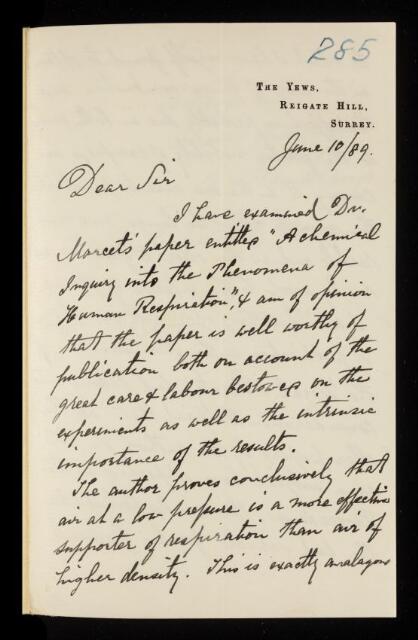 285
THE YEWS,
REIGATE HILL,
SURREY.
June 10/89.
Dear Sir
I have examined Dr.
Marcet's paper entitled "A chemical
Inquiry into the Phenomena of
Human Respiration", & am of opinion
that the paper is well worthy of
publication both on account of the
great care & labour bestowed on the
experiments as well as the intrinsic
importance of the results.
The author proves conclusively that
air at a low pressure is a more effective
supporter of respiration than air of
higher density. This is exactly analagous